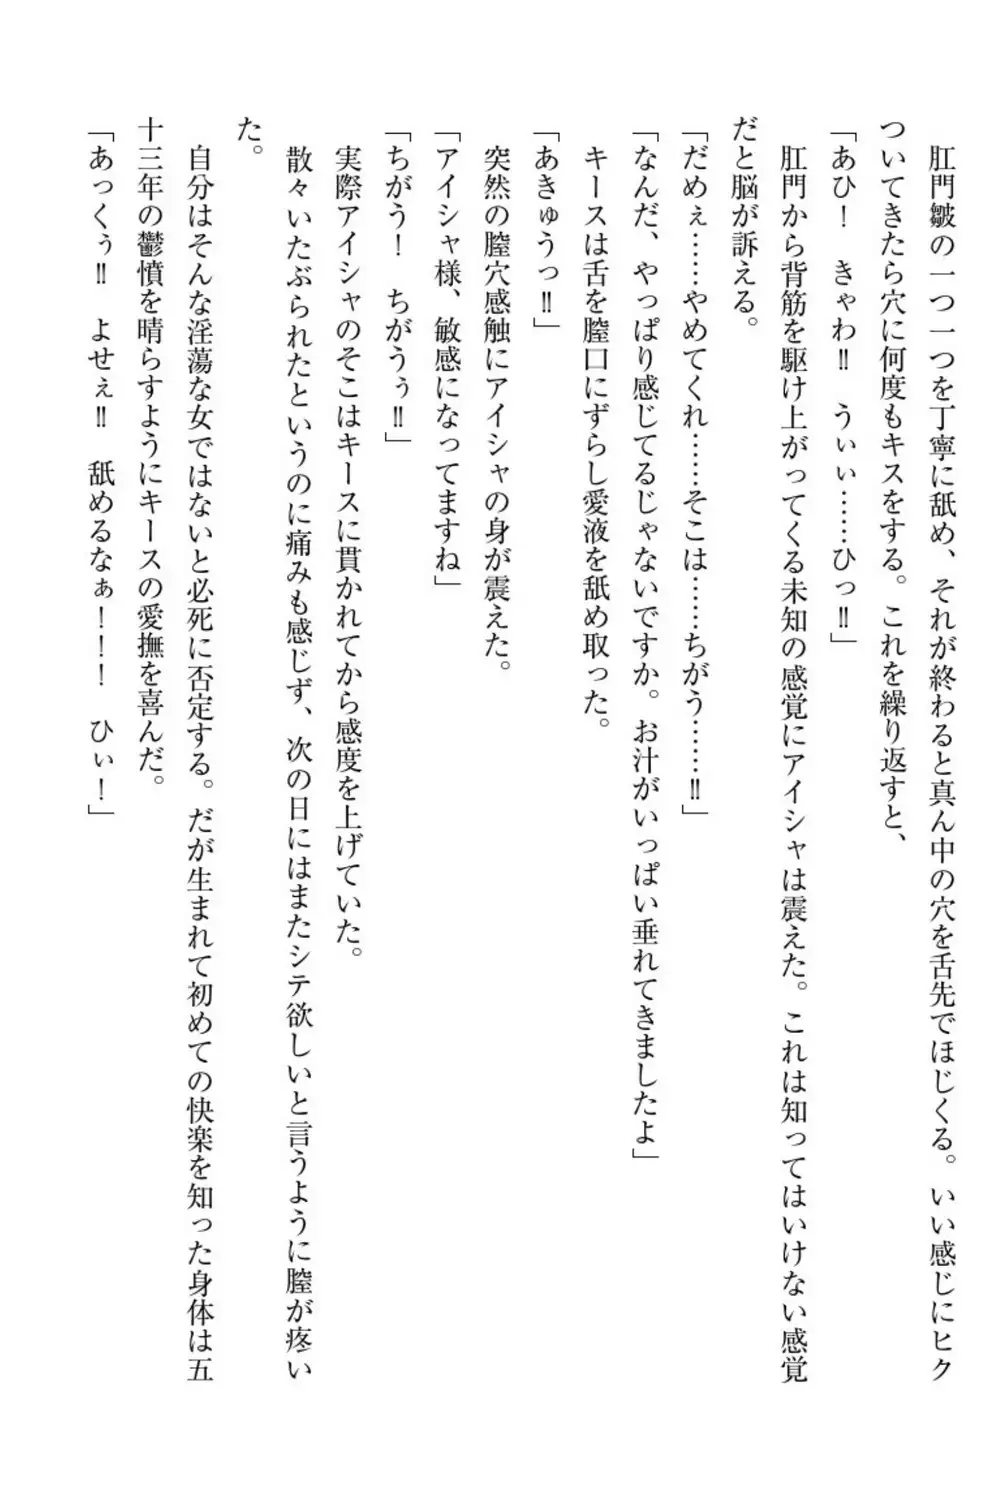 肛門皺の一つ一つを丁寧に舐め、それが終わると真ん中の穴を舌先でほじくる。いい感じにヒク
ついてきたら穴に何度もキスをする。これを繰り返すと、
「あひ！　きゃわ‼　うぃぃ……ひっ‼」
　肛門から背筋を駆け上がってくる未知の感覚にアイシャは震えた。これは知ってはいけない感覚
だと脳が訴える。
「だめぇ……やめてくれ……そこは……ちがう……‼」
「なんだ、やっぱり感じてるじゃないですか。お汁がいっぱい垂れてきましたよ」
　キースは舌を膣口にずらし愛液を舐め取った。
「あきゅうっ‼」
　突然の膣穴感触にアイシャの身が震えた。
「アイシャ様、敏感になってますね」
「ちがう！　ちがうぅ‼」
　実際アイシャのそこはキースに貫かれてから感度を上げていた。
　散々いたぶられたというのに痛みも感じず、次の日にはまたシテ欲しいと言うように膣が疼い
た。
　自分はそんな淫蕩な女ではないと必死に否定する。だが生まれて初めての快楽を知った身体は五
十三年の鬱憤を晴らすようにキースの愛撫を喜んだ。
「あっくぅ‼　よせぇ‼　舐めるなぁ！！！　ひぃ！」